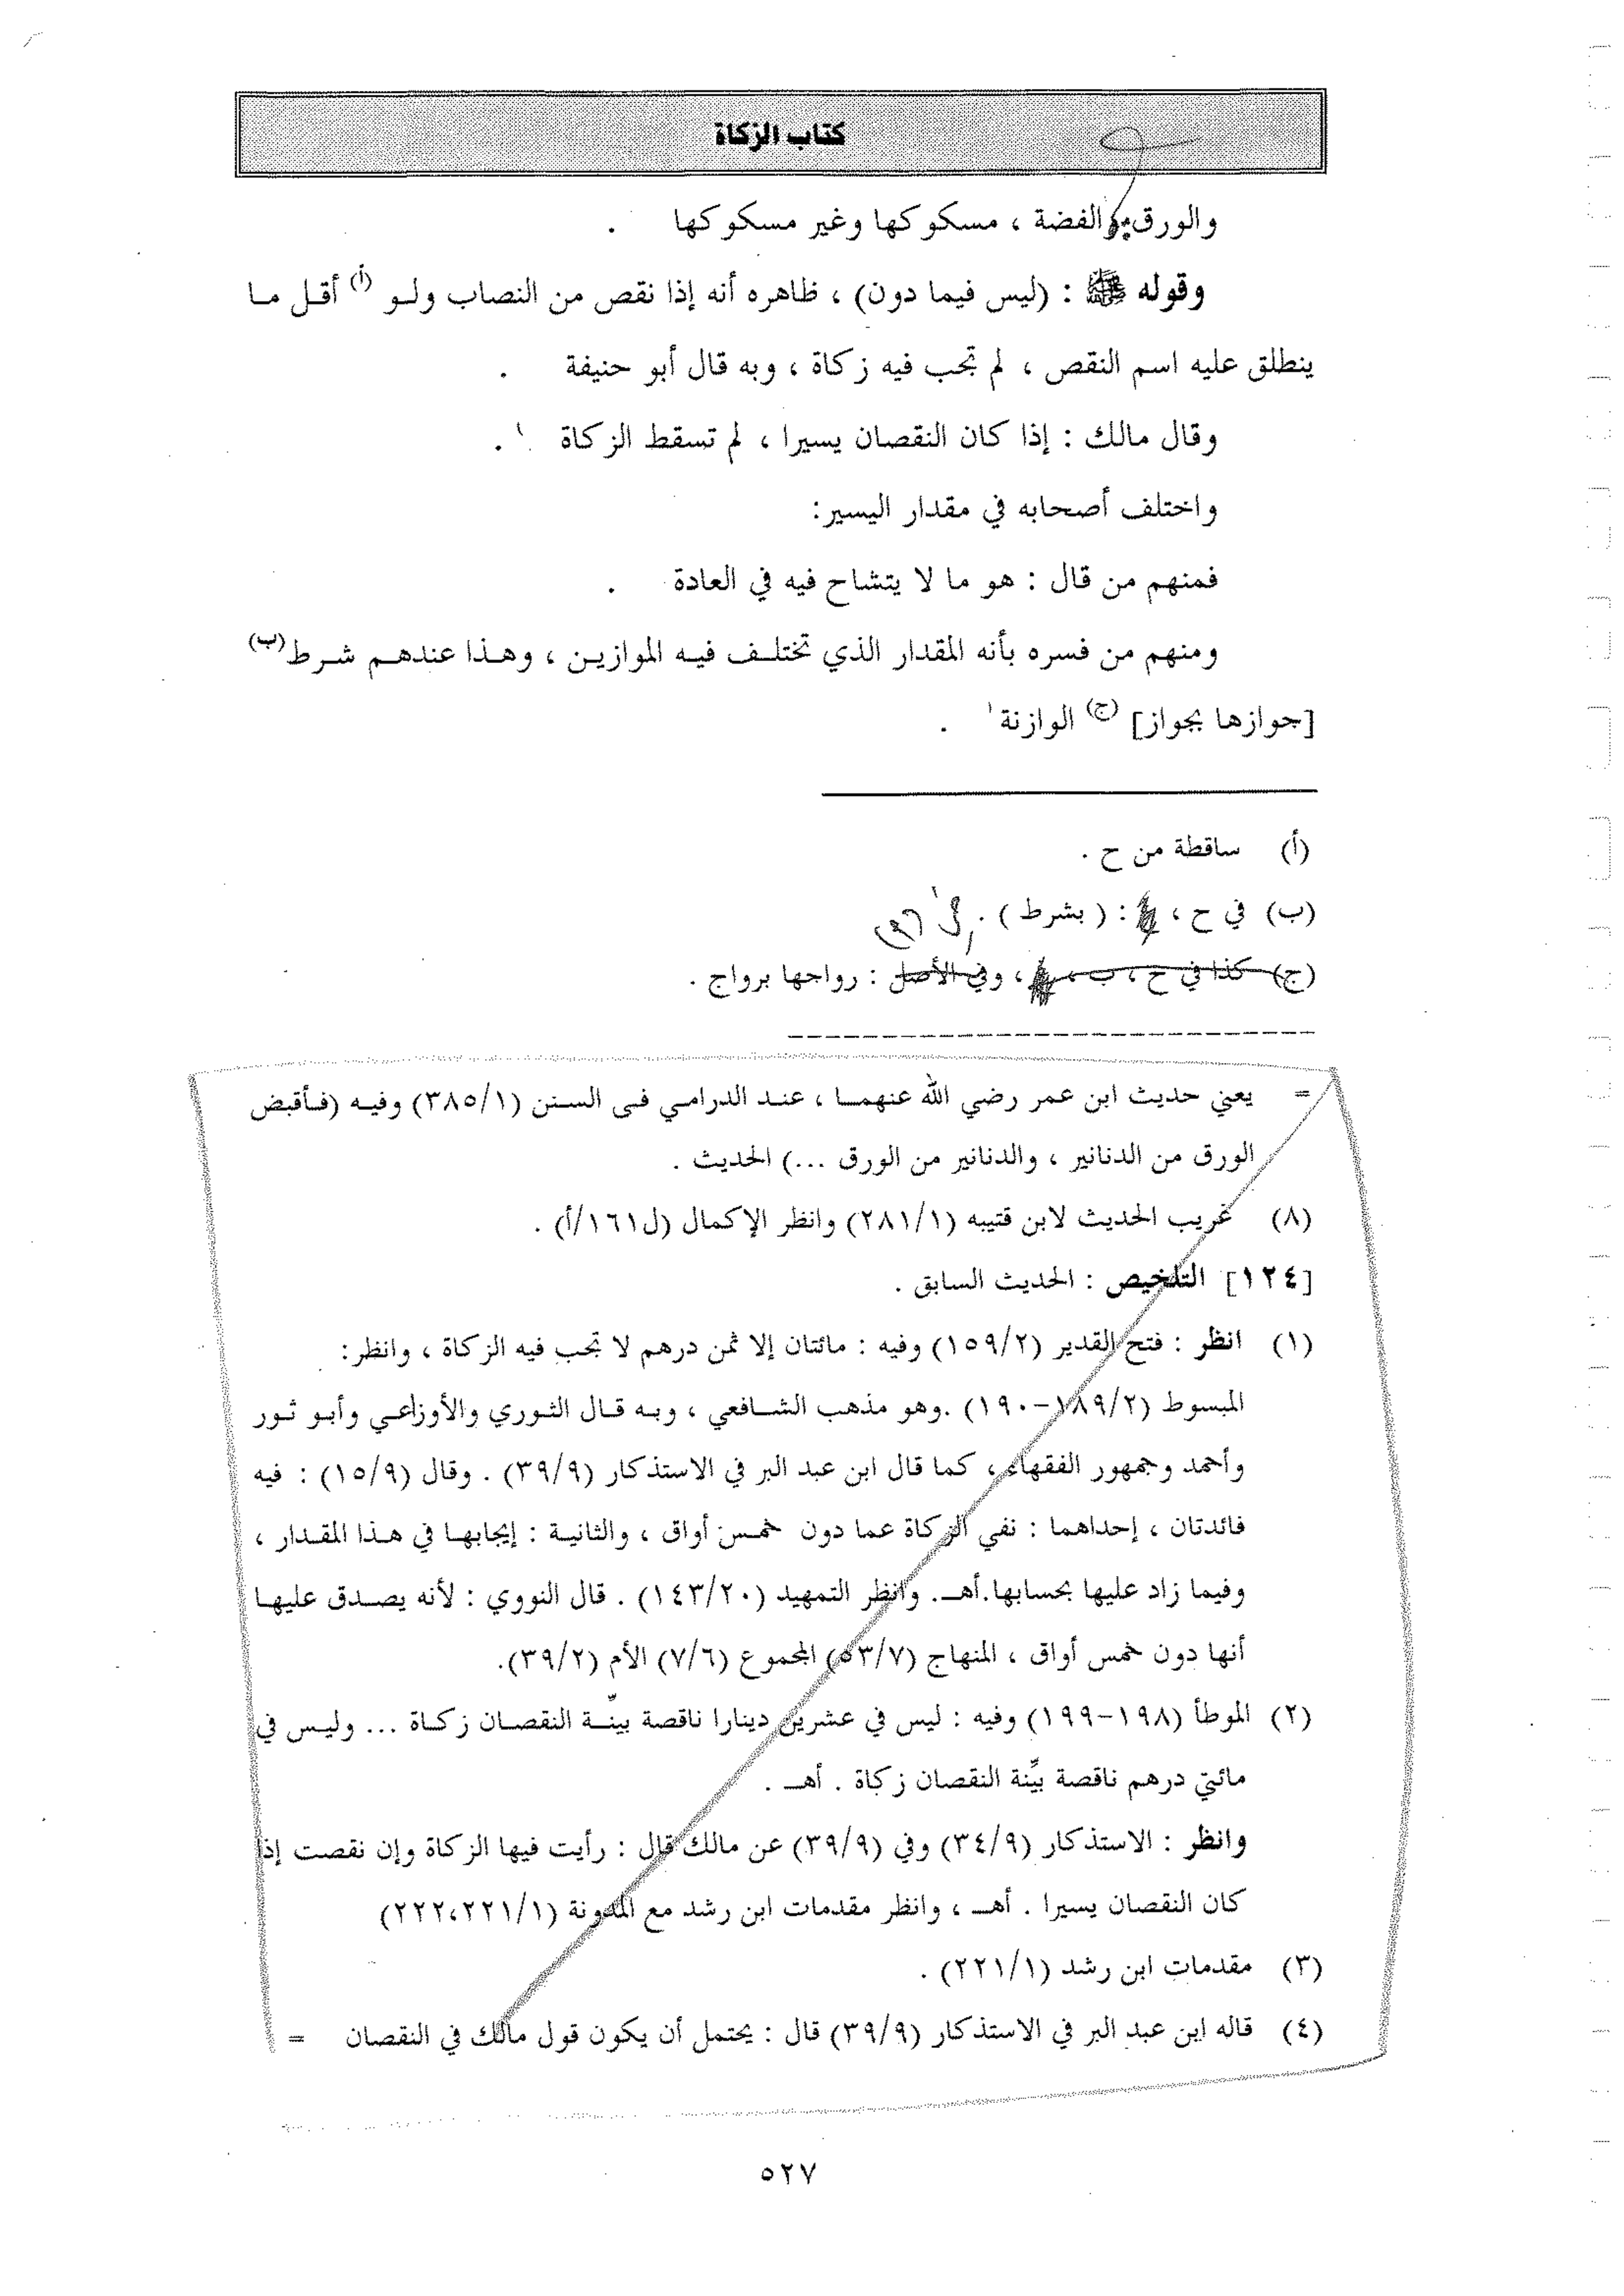 كتاب الزكاة
والورق والفضة ، مسكوكها وغير مسكوكها .
وقوله ﷺ : (ليس فيما دون) ، ظاهره أنه إذا نقص من النصاب ولـو (أ) أقـل مـا
ينطلق عليه اسم النقص ، لم تجب فيه زكاة ، وبه قال أبو حنيفة .
وقال مالك : إذا كان النقصان يسيرا ، لم تسقط الزكاة .
واختلف أصحابه في مقدار اليسير:
فمنهم من قال : هو ما لا يتشاح فيه في العادة .
ومنهم من فسره بأنه المقدار الذي تختلـف فيـه الموازيـن ، وهـذا عندهـم شـرط(ب)
[جوازها بجواز] (ج) الوازنة .
(أ) ساقطة من ح .
(ب) في ح ، : ( بشرط ) .
(ج) كذا في ح ، ب ، ، وفي الأصل : رواجها برواج .
= يعني حديث ابن عمر رضي الله عنهمـا ، عنـد الدرامـي فـى السـنن (٣٨٥/١) وفيـه (فـأقبض
الورق من الدنانير ، والدنانير من الورق ...) الحديث .
(٨) غريب الحديث لابن قتيبه (٢٨١/١) وانظر الإكمال (ل١٦١/أ) .
[١٢٤] التلخيص : الحديث السابق .
(١) انظر : فتح القدير (١٥٩/٢) وفيه : مائتان إلا ثمن درهم لا تجب فيه الزكاة ، وانظر:
المبسوط (١٨٩/٢-١٩٠) .وهو مذهب الشـافعي ، وبـه قـال الثـوري والأوزاعـي وأبـو ثـور
وأحمد وجمهور الفقهاء ، كما قال ابن عبد البر في الاستذكار (٣٩/٩) . وقال (١٥/٩) : فيه
فائدتان ، إحداهما : نفي الزكاة عما دون خمـس أواق ، والثانيـة : إيجابهـا في هـذا المقـدار ،
وفيما زاد عليها بحسابها.أهـ. وانظر التمهيد (١٤٣/٢٠) . قال النووي : لأنه يصـدق عليهـا
أنها دون خمس أواق ، المنهاج (٥٣/٧) المجموع (٧/٦) الأم (٣٩/٢).
(٢) الموطأ (١٩٨-١٩٩) وفيه : ليس في عشرين دينارا ناقصة بيّنـة النقصـان زكـاة ... وليـس في
مائتي درهم ناقصة بيِّنة النقصان زكاة . أهـ .
وانظر : الاستذكار (٣٤/٩) وفي (٣٩/٩) عن مالك قال : رأيت فيها الزكاة وإن نقصت إذا
كان النقصان يسيرا . أهـ ، وانظر مقدمات ابن رشد مع المدونة (٢٢٢،٢٢١/١)
(٣) مقدمات ابن رشد (٢٢١/١) .
(٤) قاله ابن عبد البر في الاستذكار (٣٩/٩) قال : يحتمل أن يكون قول مالك في النقصان =
٥٢٧